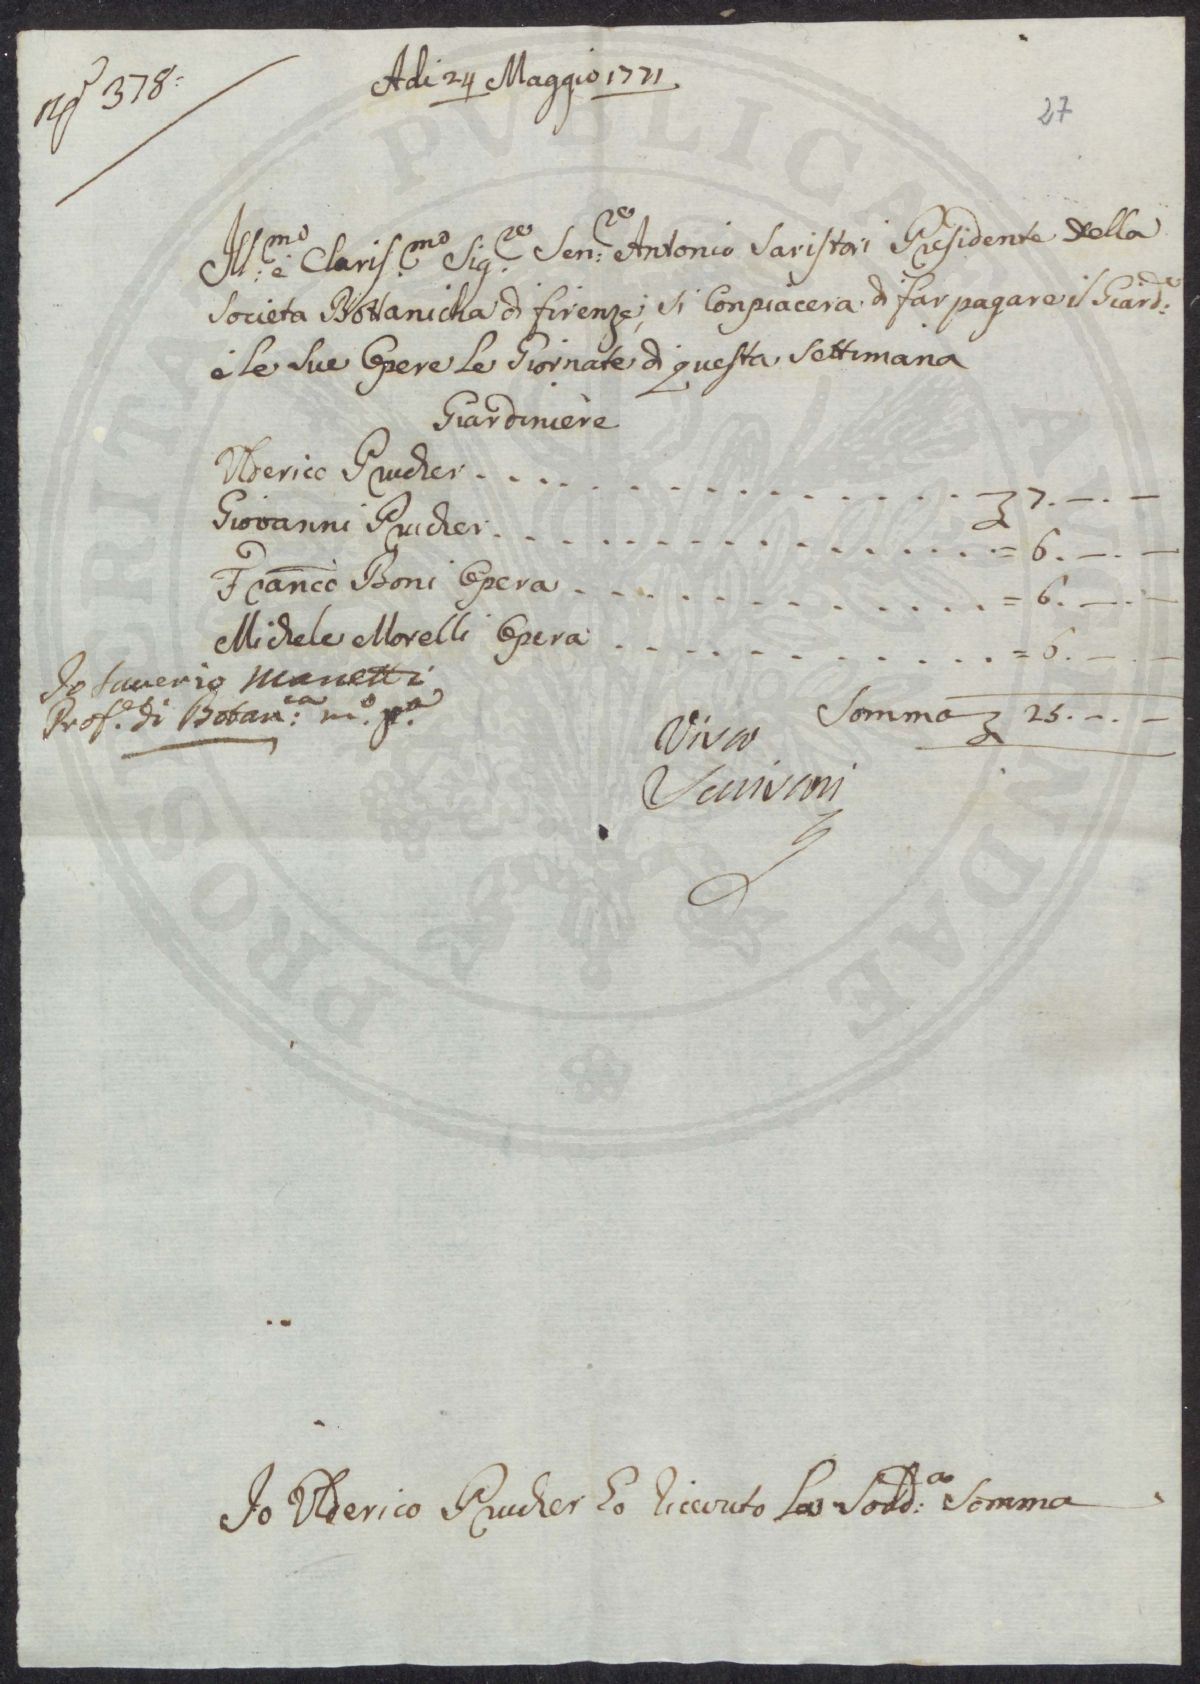 N.º 378:
Adi 24 Maggio 1771.
27
Ill:mo e Claris.mo Sig.re Sen:re Antonio Saristori Presidente della
Societa Bottanicha di firenze, Si Conpiacera di far pagare il Giard:e
e le Sue Opere Le Giornate di questa Settimana
Giardiniere
Ulderico Prucher . . . . . . . . . . . . . . . 7. — . —
Giovanni Prucher . . . . . . . . . . . . . . . = 6. — . —
Franco Boni Opera . . . . . . . . . . . . . = 6. — . —
Michele Morelli Opera . . . . . . . . . . . = 6. — . —
Somma 25. — . —
Io Saverio Manetti
Prof.e di Botan:ca m.o p.a
Visto
Io Ulderico Prucher ho ricevuto La Sodd:a Somma
PROSPERITATI PVBLICAE AVGENDAE